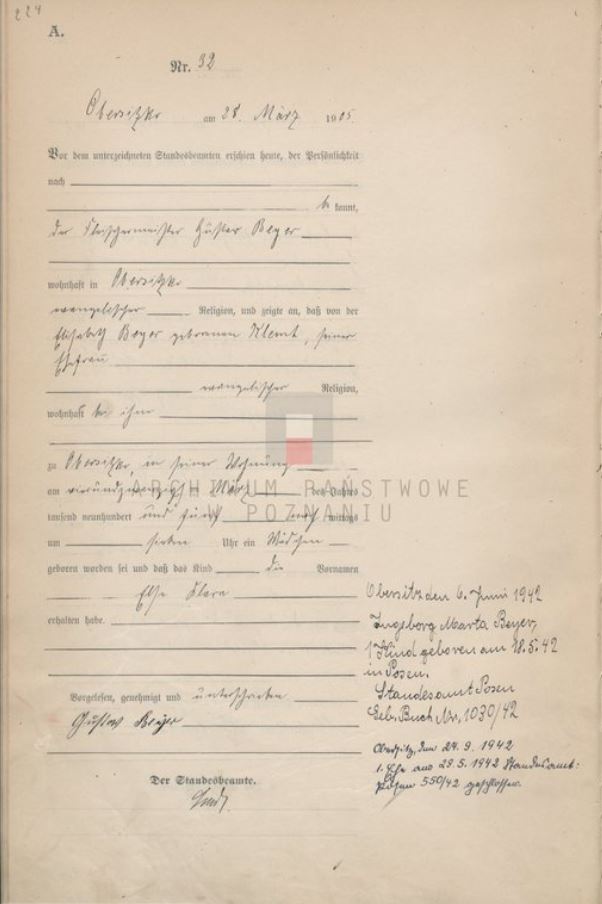 224
A.
Nr. 32
Obersitzko am 28. März 1905.
Vor dem unterzeichneten Standesbeamten erschien heute, der Persönlichkeit
nach
bekannt,
der Fleischermeister Gustav Beyer
wohnhaft in Obersitzko
evangelischer Religion, und zeigte an, daß von der
Elisabeth Beyer geborenen Klemt, seiner
Ehefrau
evangelischer Religion,
wohnhaft bei ihm
zu Obersitzko, in seiner Wohnung
am vierundzwanzigsten März des Jahres
tausend neunhundert und fünf nachmittags
um sieben Uhr ein Mädchen
geboren worden sei und daß das Kind die Vornamen
Else Klara
erhalten habe.
Vorgelesen, genehmigt und unterschrieben
Gustav Beyer
Der Standesbeamte.
Obersitz den 6. Juni 1942
Ingeborg Marta Beyer,
1 Kind geboren am 18.5.42
in Posen.
Standesamt Posen
Geb. Buch Nr. 1030/42
Obersitz, den 24. 9. 1942
1. Ehe am 29.5.1942 Standesamt:
Posen 550/42 geschlossen.
ARCHIWUM PAŃSTWOWE
W POZNANIU